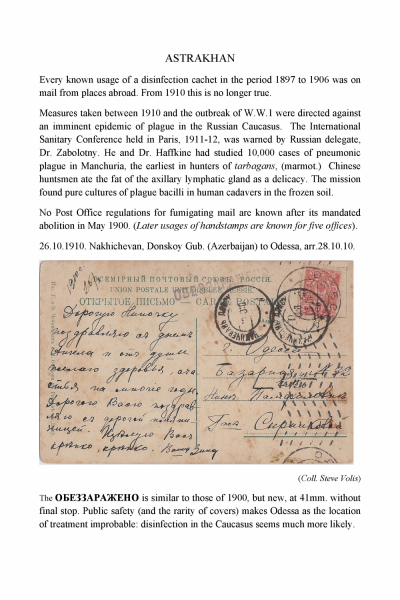 ASTRAKHAN
Every known usage of a disinfection cachet in the period 1897 to 1906 was on
mail from places abroad. From 1910 this is no longer true.
Measures taken between 1910 and the outbreak of W.W.1 were directed against
an imminent epidemic of plague in the Russian Caucasus. The International
Sanitary Conference held in Paris, 1911-12, was warned by Russian delegate,
Dr. Zabolotny. He and Dr. Haffkine had studied 10,000 cases of pneumonic
plague in Manchuria, the earliest in hunters of tarbagans, (marmot.) Chinese
huntsmen ate the fat of the axillary lymphatic gland as a delicacy. The mission
found pure cultures of plague bacilli in human cadavers in the frozen soil.
No Post Office regulations for fumigating mail are known after its mandated
abolition in May 1900. (Later usages of handstamps are known for five offices).
26.10.1910. Nakhichevan, Donskoy Gub. (Azerbaijan) to Odessa, arr.28.10.10.
ВСЕМІРНЫЙ ПОЧТОВЫЙ СОЮЗЪ. РОССІЯ.
UNION POSTALE UNIVERSELLE. RUSSIE.
ОТКРЫТОЕ ПИСЬМО CARTE POSTALE
Дорогую Ниночку
поздравляю съ днемъ
Ангела и отъ души
желаю здоровья, сча
стья на многіе годы.
Дорогого Васю поздрав
ляю съ дорогой
Цѣлую Васъ
крѣпко, крѣпко. Ваша Зина
г. Одесса
Базарная
Нинѣ
(Coll. Steve Volis)
The ОБЕЗЗАРАЖЕНО is similar to those of 1900, but new, at 41mm. without
final stop. Public safety (and the rarity of covers) makes Odessa as the location
of treatment improbable: disinfection in the Caucasus seems much more likely.